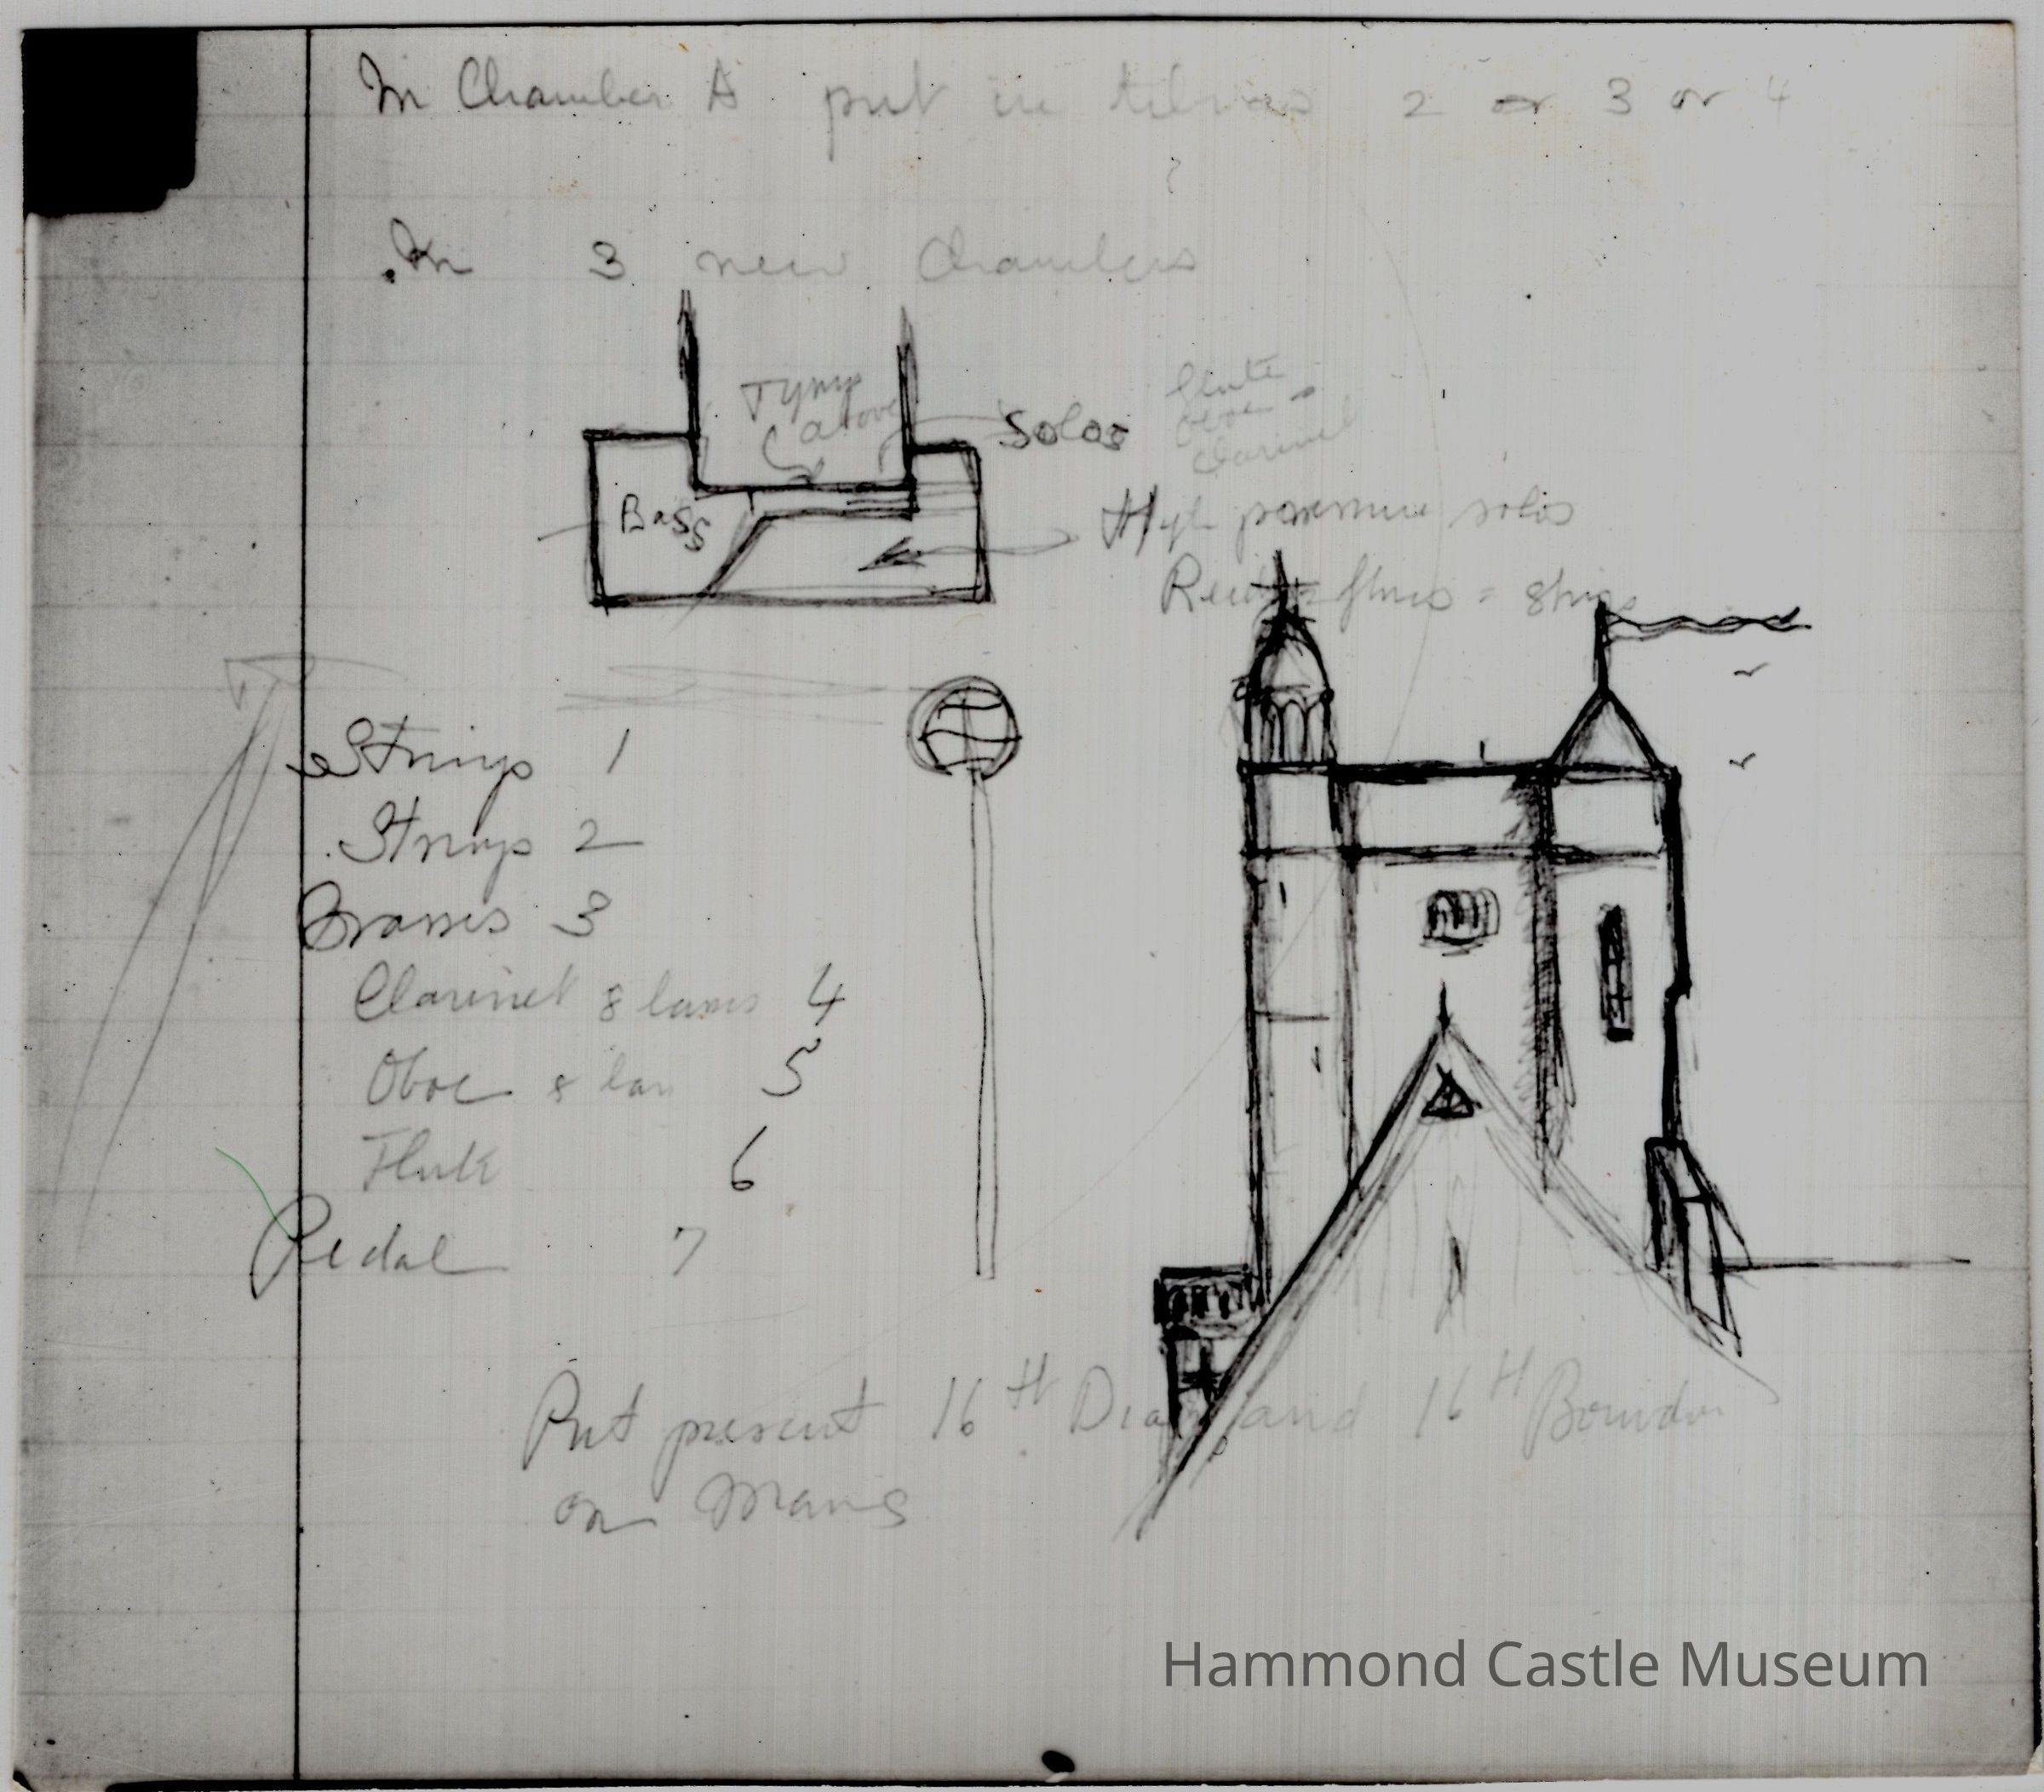 In Chamber A put in 2 or 3 or 4
?
In 3 new Chambers
Tymp
above
Solos
flute
oboe
clarinet
Bass
High pressure solos
Reeds = flues = strings
Strings 1
Strings 2
Brasses 3
Clarinet & 4
Oboe & 5
Flute 6
Pedal 7
Put present 16 ft Diap and 16 ft Bourdon
on
Hammond Castle Museum